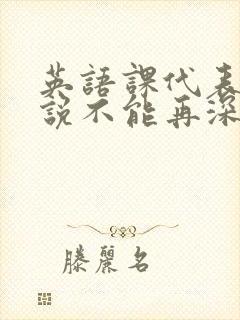 英語課代表
說不能再深
滕麗名